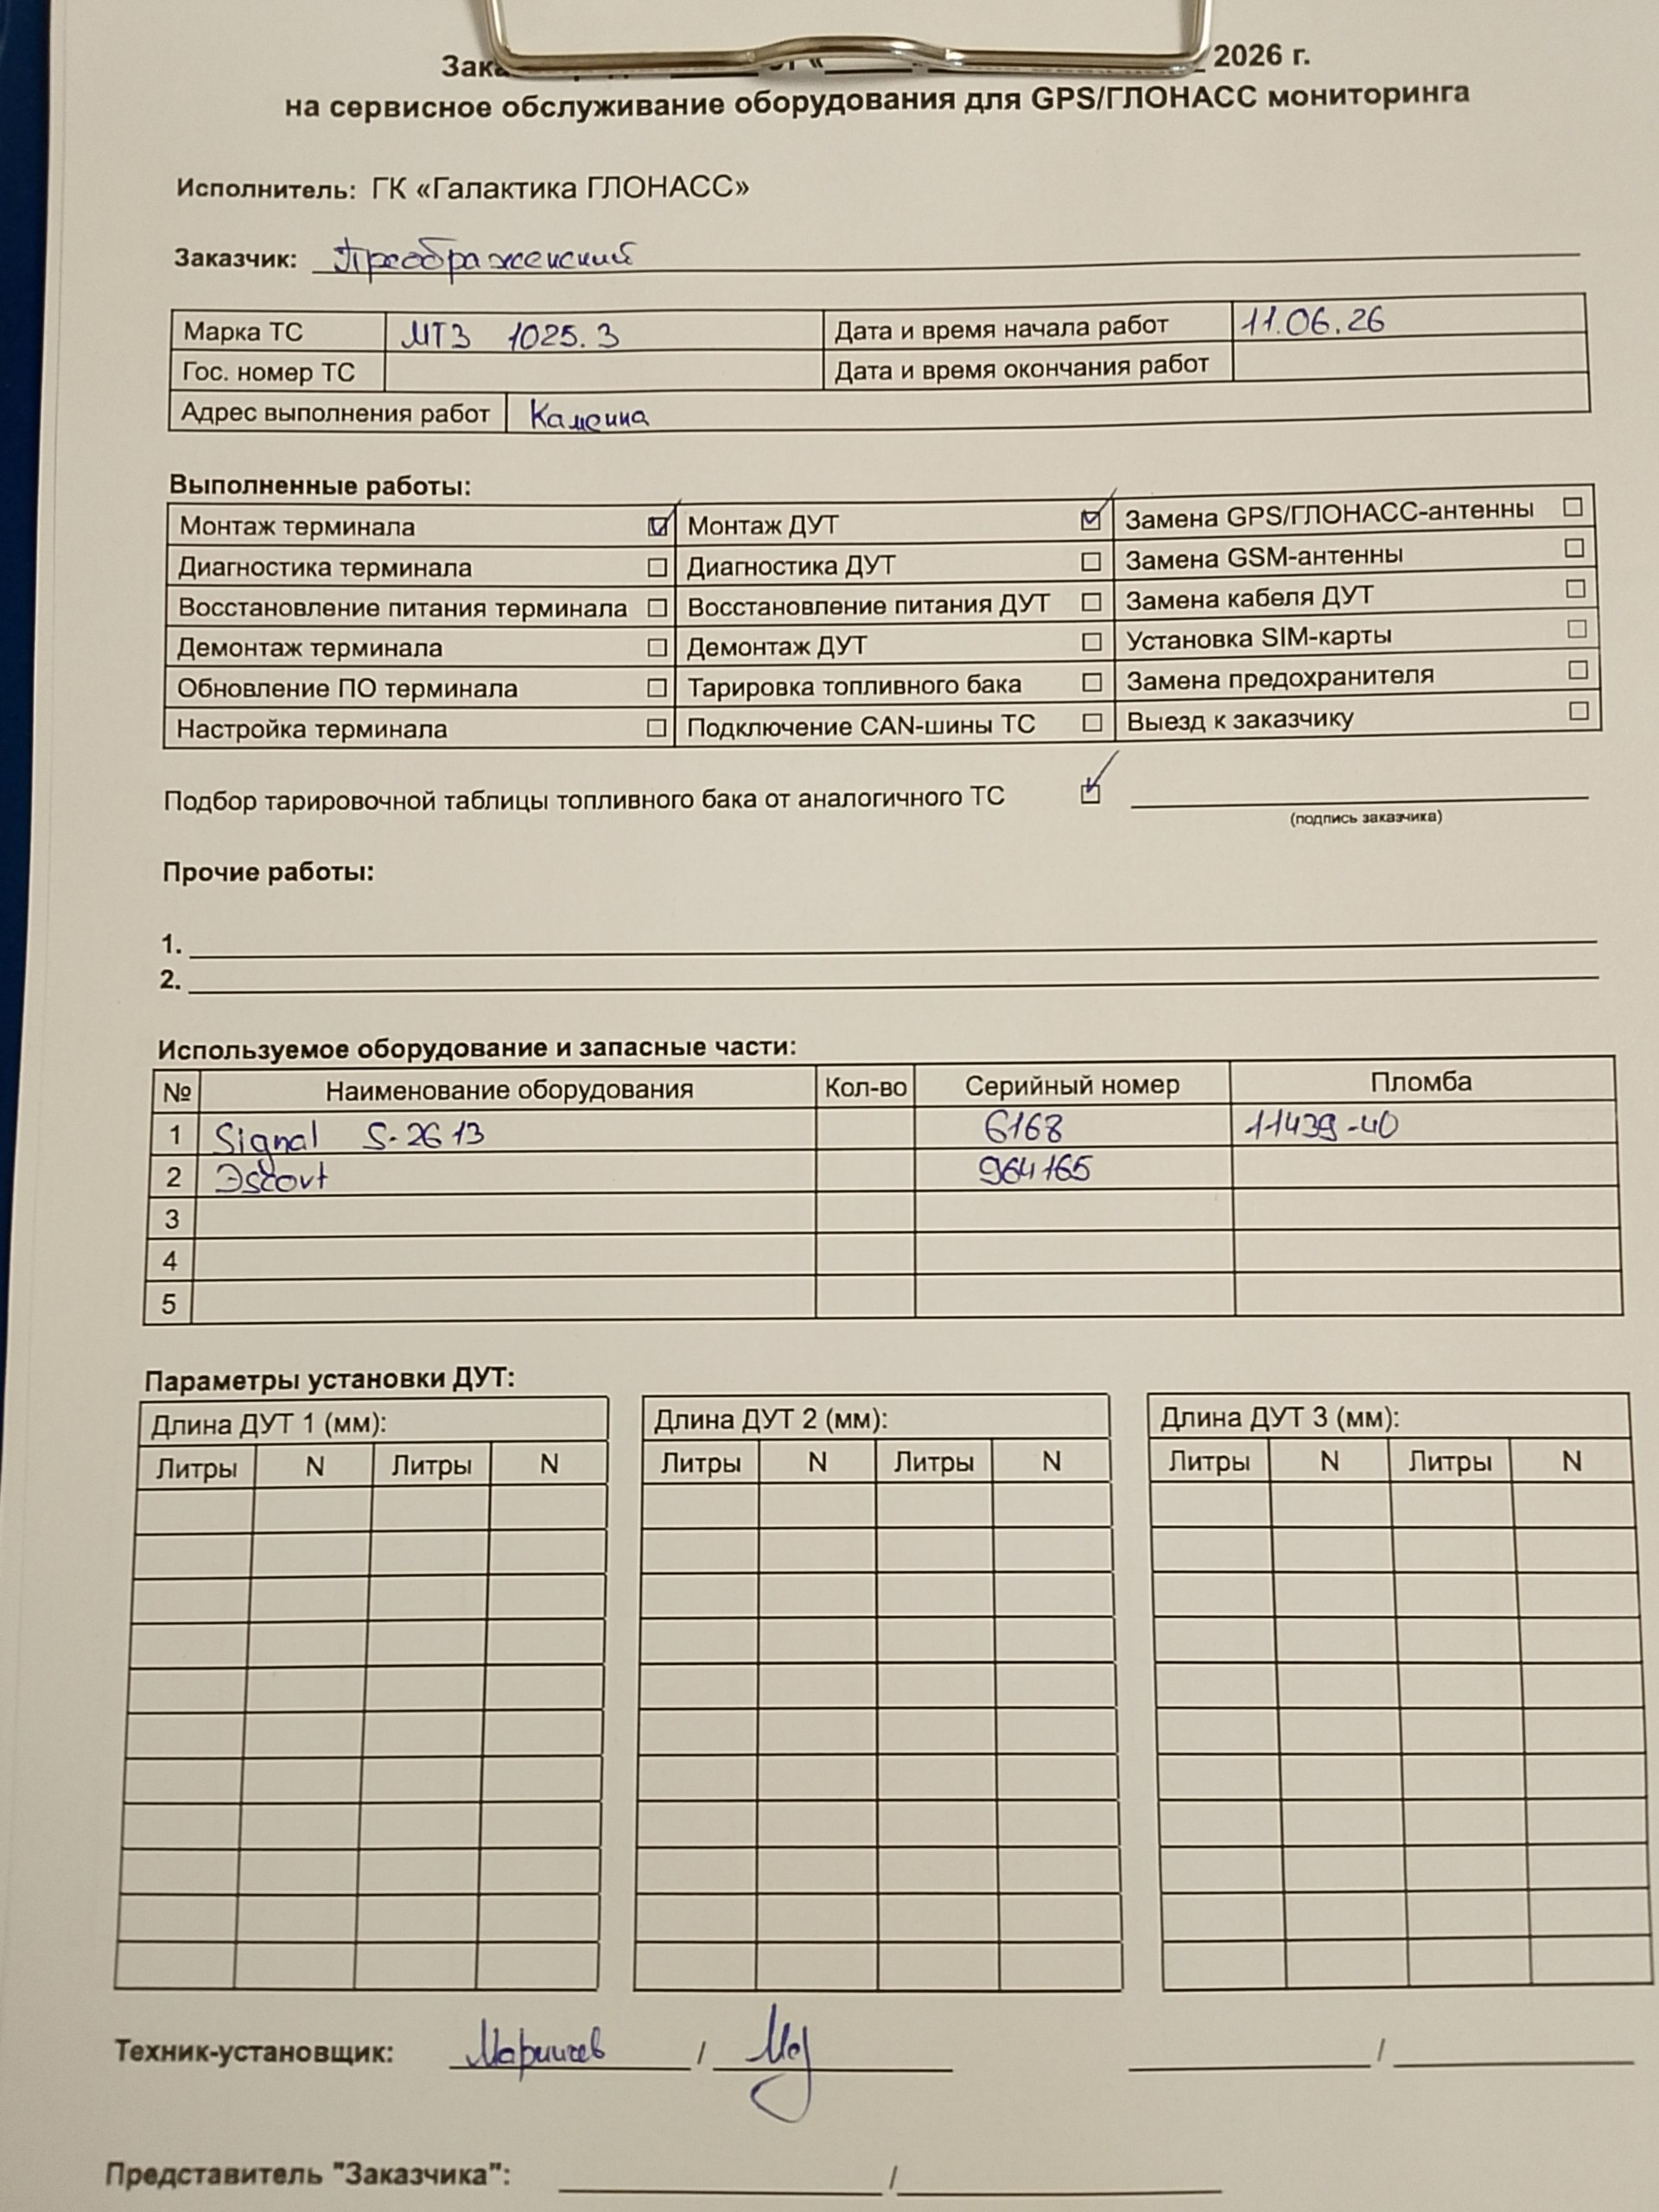 2026 г.
на сервисное обслуживание оборудования для GPS/ГЛОНАСС мониторинга
Исполнитель: ГК «Галактика ГЛОНАСС»
Заказчик: Преображенский
Марка ТС МТЗ 1025.3 Дата и время начала работ 11.06.26
Гос. номер ТС Дата и время окончания работ
Адрес выполнения работ
Выполненные работы:
Монтаж терминала ☑ Монтаж ДУТ ☑ Замена GPS/ГЛОНАСС-антенны ☐
Диагностика терминала ☐ Диагностика ДУТ ☐ Замена GSM-антенны ☐
Восстановление питания терминала ☐ Восстановление питания ДУТ ☐ Замена кабеля ДУТ ☐
Демонтаж терминала ☐ Демонтаж ДУТ ☐ Установка SIM-карты ☐
Обновление ПО терминала ☐ Тарировка топливного бака ☐ Замена предохранителя ☐
Настройка терминала ☐ Подключение CAN-шины ТС ☐ Выезд к заказчику ☐
Подбор тарировочной таблицы топливного бака от аналогичного ТС ☑
(подпись заказчика)
Прочие работы:
1.
2.
Используемое оборудование и запасные части:
№ Наименование оборудования Кол-во Серийный номер Пломба
1 Signal S-2613 6168 11439-40
2 Эscort 964165
3
4
5
Параметры установки ДУТ:
Длина ДУТ 1 (мм): Длина ДУТ 2 (мм): Длина ДУТ 3 (мм):
Литры N Литры N Литры N Литры N Литры N Литры N
Техник-установщик: / /
Представитель "Заказчика": /